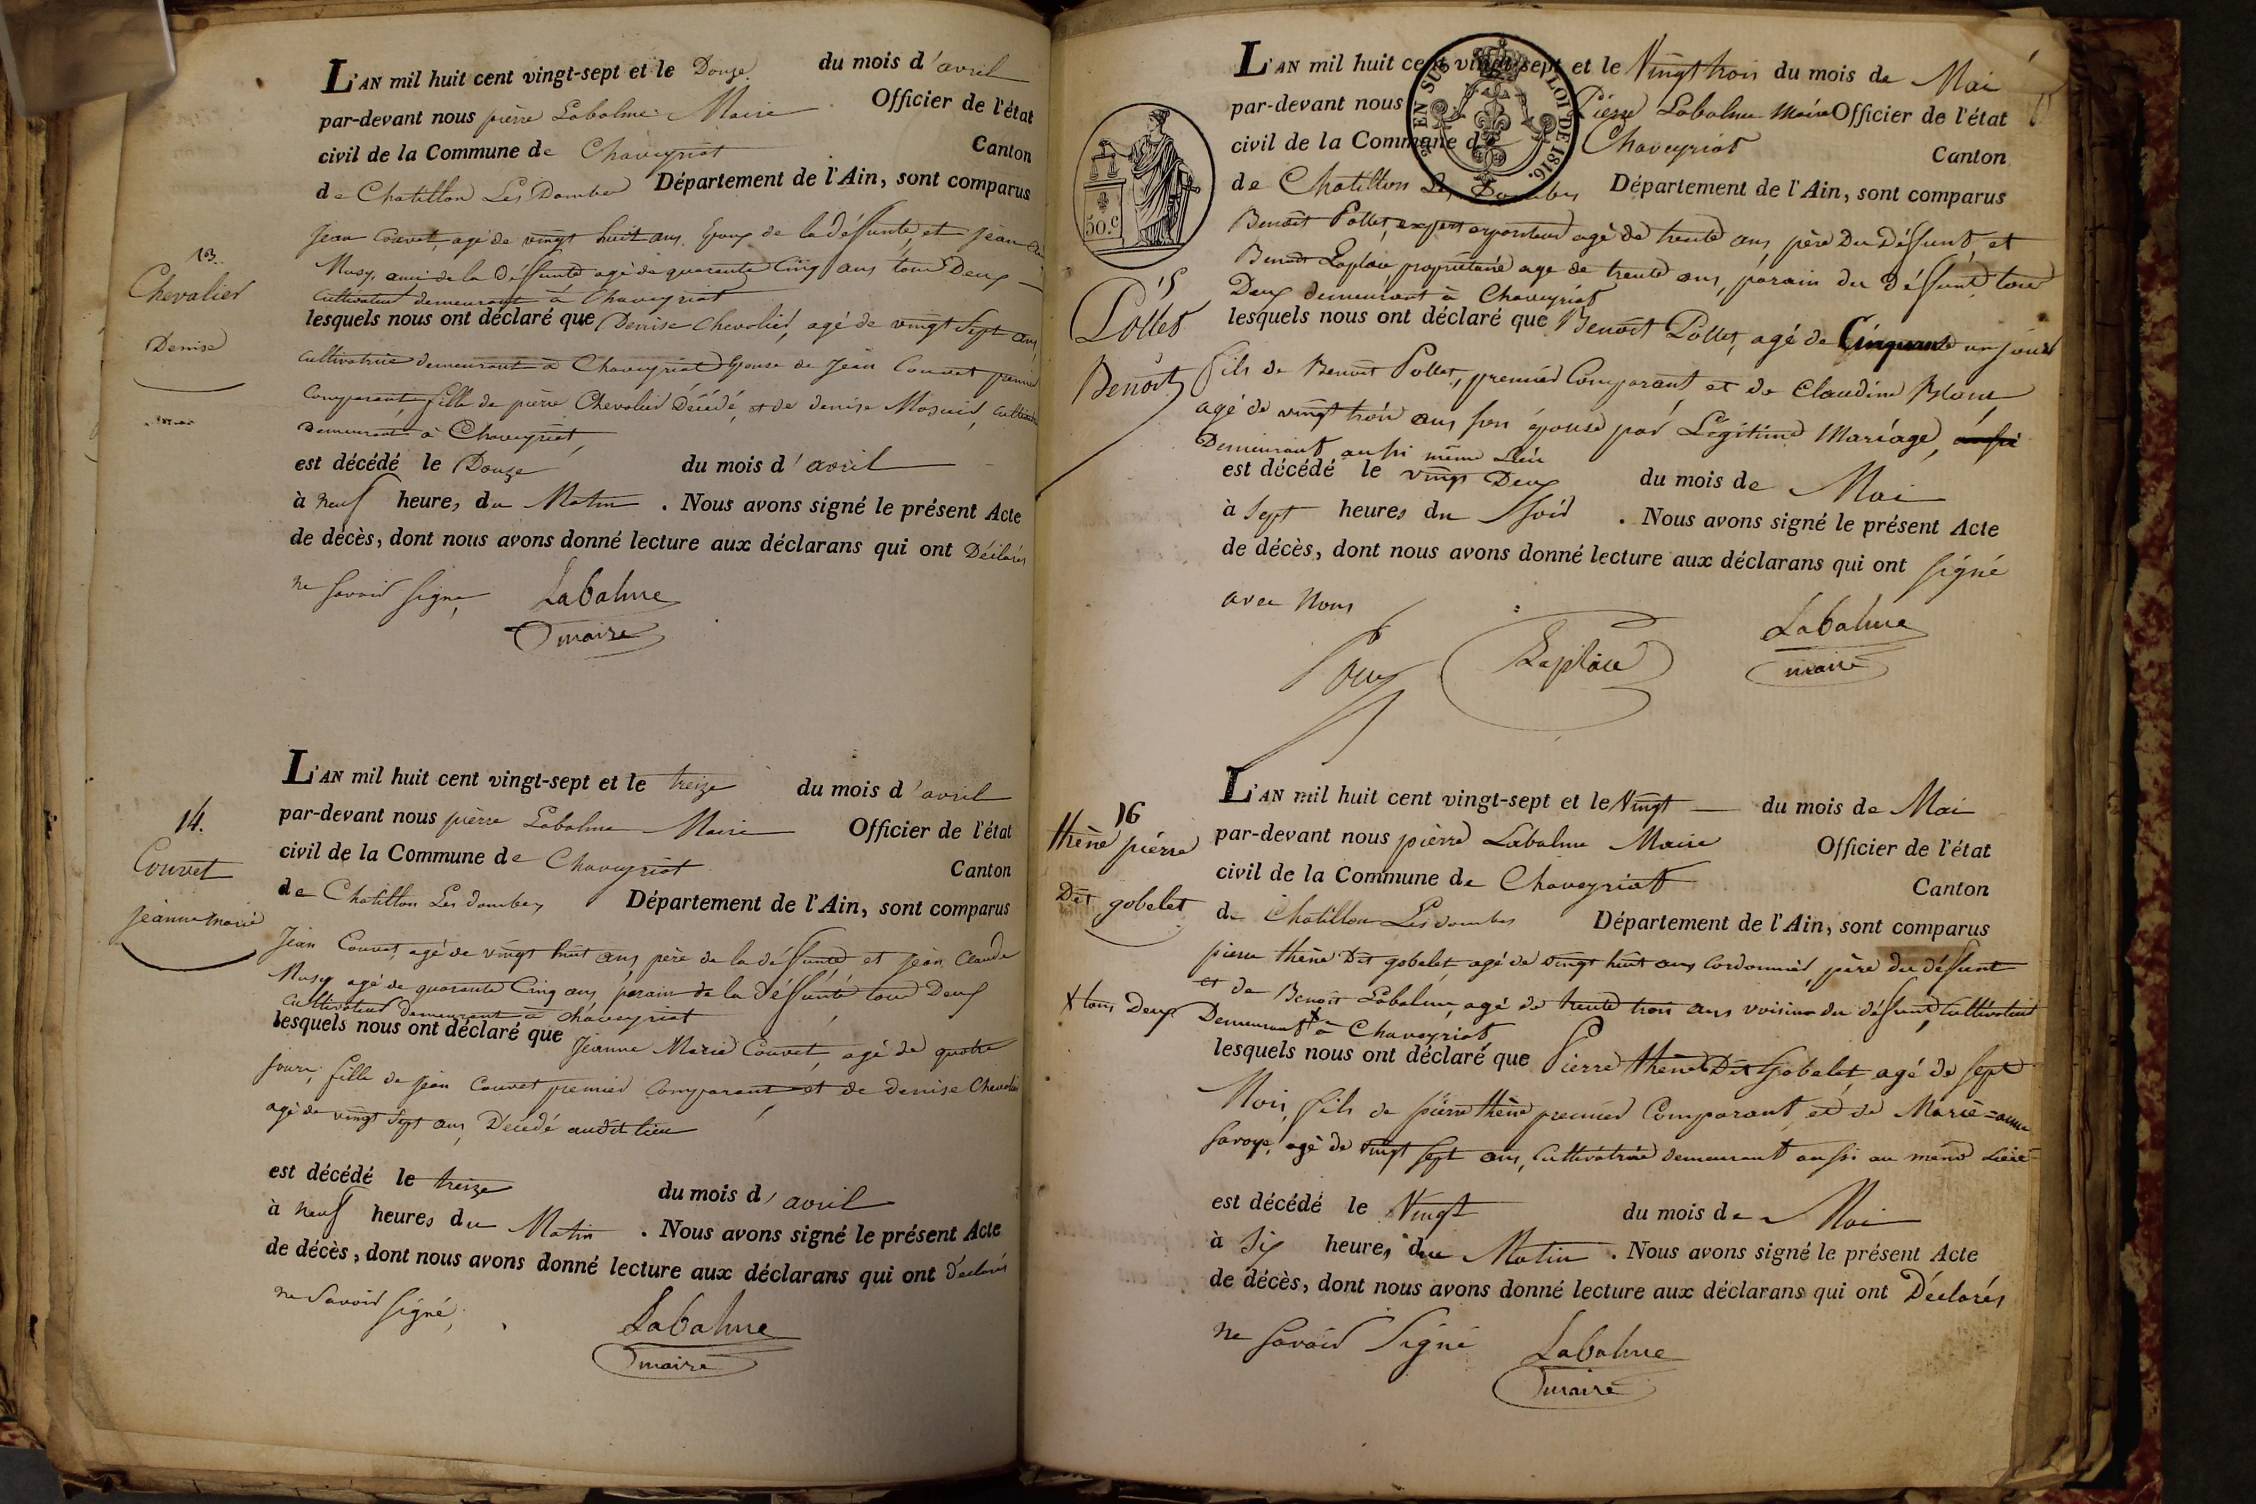 L'AN mil huit cent vingt-sept et le Douze du mois d'avril
par-devant nous pièrre Labalme Maire Officier de l'état
civil de la Commune de Chaveyriat Canton
de Chatillon Les Dombes Département de l'Ain, sont comparus
13.
Chevalier
Denise
Jean Couvet, agé de vingt huit ans, Epoux de la déffunte, et Jean
Musy, ami de la Déffunte agé de quarante Cinq ans tous Deux
Cultivateur demeurant à Chaveyriat
lesquels nous ont déclaré que Denise Chevalier, agé de vingt Sept ans,
Cultivatrice demeurant à Chaveyriat Epouse de Jean Couvet premier
Comparant, fille de pièrre Chevalier Décédé, et de denise
Demeurant à Chaveyriat,
est décédé le Douze du mois d'avril
à neuf heures du Matin. Nous avons signé le présent Acte
de décès, dont nous avons donné lecture aux déclarans qui ont Déclarés
ne Savoir signe, Labalme
maire
14.
Couvet
Jeanne Marie
L'AN mil huit cent vingt-sept et le treize du mois d'avril
par-devant nous pièrre Labalme Maire Officier de l'état
civil de la Commune de Chaveyriat Canton
de Chatillon Les dombes Département de l'Ain, sont comparus
Jean Couvet, agé de vingt huit ans, père de la déffunte et Jean Claude
Musy agé de quarante Cinq ans, parain de la Déffunte, tous Deux
Cultivateur demeurant à Chaveyriat
lesquels nous ont déclaré que Jeanne Marie Couvet, agé de quatre
Jours, fille de Jean Couvet premier Comparant et de denise Chevalier
agé de vingt Sept ans, Décédé audit lieu
est décédé le treize du mois d'avril
à neuf heures du Matin. Nous avons signé le présent Acte
de décès, dont nous avons donné lecture aux déclarans qui ont déclarés
ne Savoir signé, Labalme
maire
L'AN mil huit cent vingt-sept et le Vingt trois du mois de Mai
par-devant nous Pièrre Labalme Maire Officier de l'état
civil de la Commune de Chaveyriat Canton
de Chatillon Les Dombes Département de l'Ain, sont comparus
EN SUS LOI DE 1816.
50.c
15
Pollet
Benoit
Benoit Pollet, expert arpenteur agé de trente ans, père Du Déffunt, et
Benoit Laplace, propriétaire age de trente ans, parain du Déffunt, tous
Deux demeurant à Chaveyriat
lesquels nous ont déclaré que Benoit Pollet, agé de Cinquante un jours
fils de Benoit Pollet, premier Comparant, et de Claudine
agé de vingt trois ans son épouse par Légitime Mariage, aussi
Demeurant aussi même Lieu
est décédé le vingt Deux du mois de Mai
à Sept heures du Soir. Nous avons signé le présent Acte
de décès, dont nous avons donné lecture aux déclarans qui ont signé
avec Nous
Laplace Labalme
maire
16
thène pièrre
Dit gobelet
L'AN mil huit cent vingt-sept et le Vingt du mois de Mai
par-devant nous pièrre Labalme Maire Officier de l'état
civil de la Commune de Chaveyriat Canton
de Chatillon Les dombes Département de l'Ain, sont comparus
pierre thène Dit gobelet agé de vingt huit ans Cordonnier, père du déffunt
et de Benoit Labalme, agé de trente trois ans voisin du défunt, Cultivateur
X tous Deux
Demeurant X à Chaveyriat
lesquels nous ont déclaré que Pierre thène Dit Gobelet, agé de sept
Mois, fils de pierre thène premier Comparant, et de Marie=anne
Savoye, agé de vingt sept ans, Cultivatrice demeurant aussi au même Lieu
est décédé le Vingt du mois de Mai
à Six heures du Matin. Nous avons signé le présent Acte
de décès, dont nous avons donné lecture aux déclarans qui ont Déclarés
ne Savoir Signé Labalme
maire